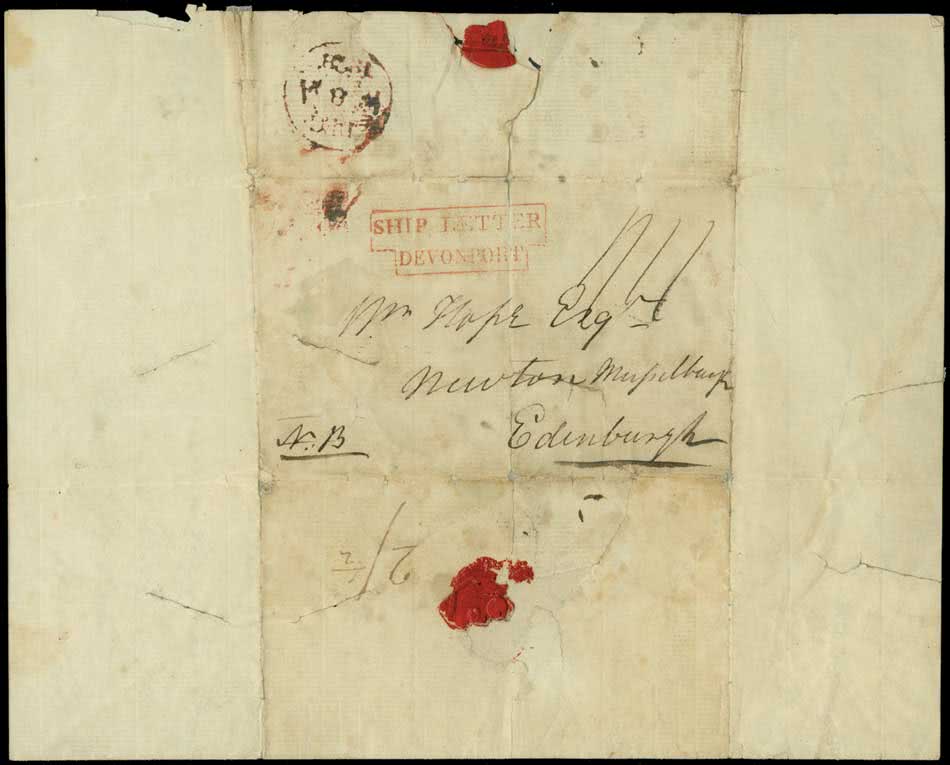 SHIP LETTER
DEVONPORT
Wm Hope Esqr
Newton Musselburgh
N.B
Edinburgh